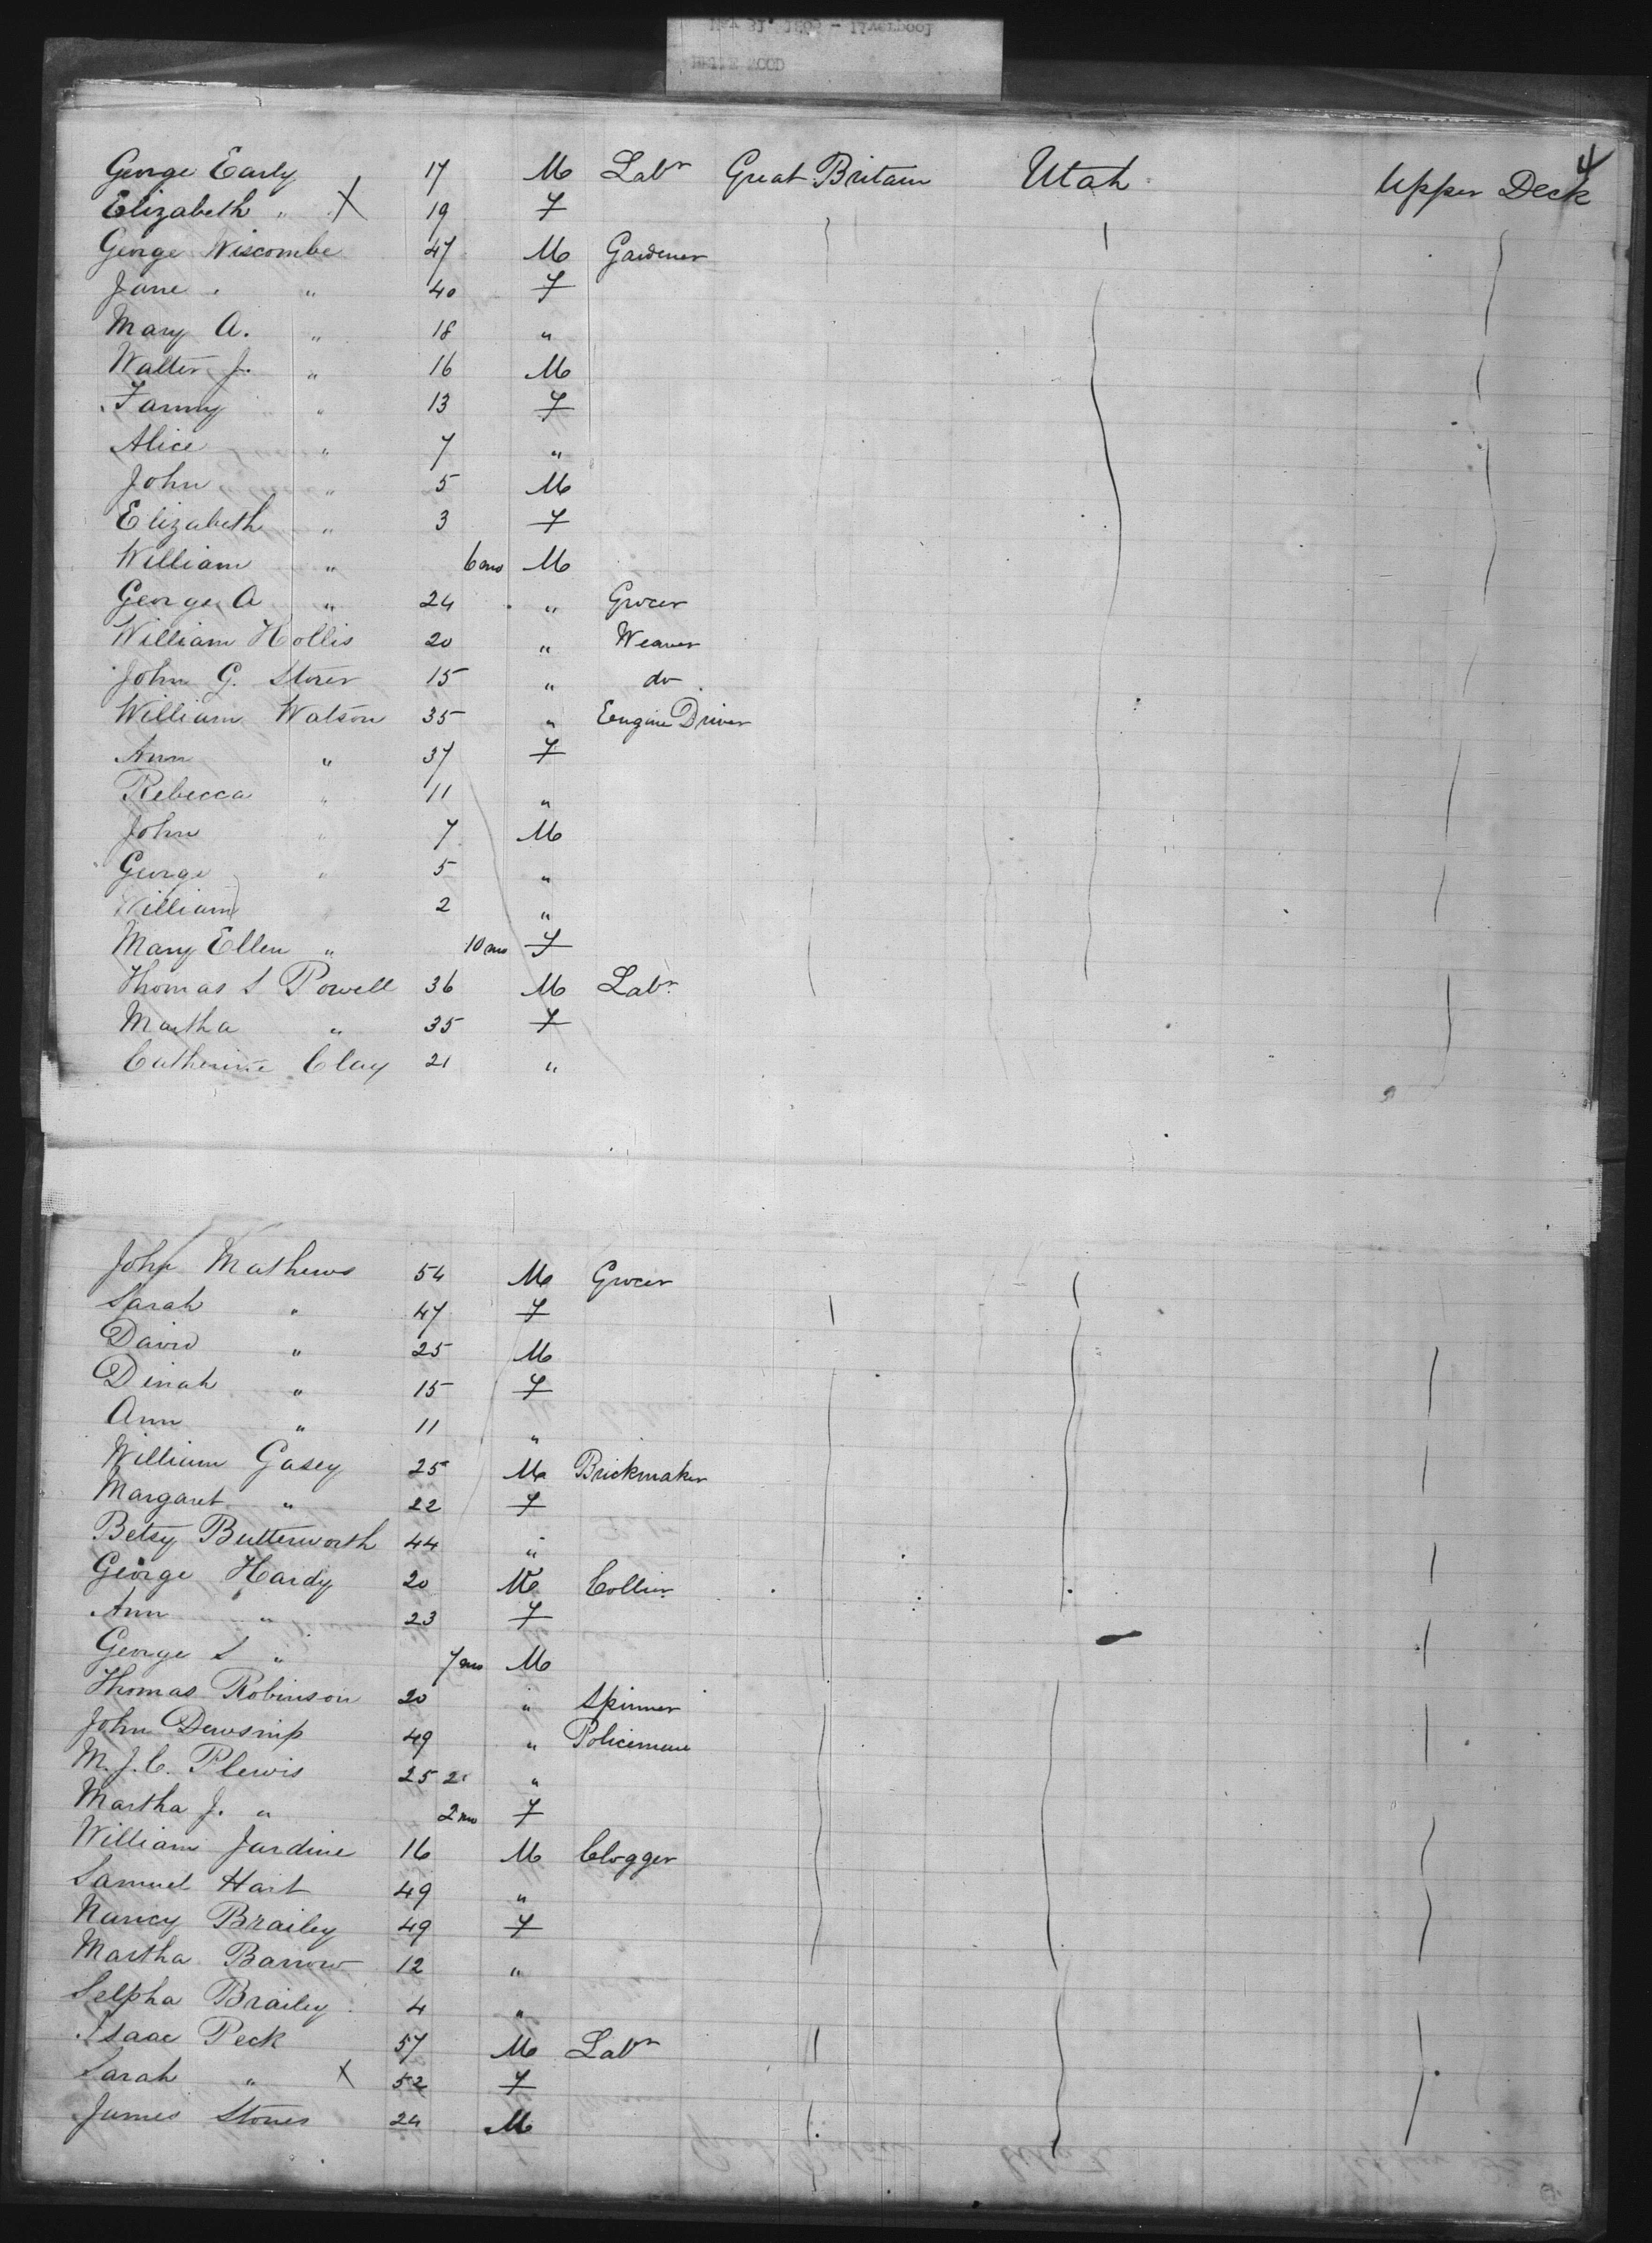 May 31, 1865 - Liverpool
BELLE WOOD
4
George Early 17 M Labr Great Britain Utah Upper Deck
Elizabeth " X 19 F
George Wiscombe 47 M Gardener
Jane " 40 F
Mary A. " 18 "
Walter J. " 16 M
Fanny " 13 F
Alice " 7 "
John " 5 M
Elizabeth " 3 F
William " 6 mo M
George A " 24 " Grocer
William Hollis 20 " Weaver
John G. Storer 15 " do
William Watson 35 " Engine Driver
Ann " 37 F
Rebecca " 11 "
John " 7 M
George " 5 "
William " 2 "
Mary Ellen " 10 mo F
Thomas S Powell 36 M Labr
Martha " 35 F
Catherine Clay 21 "
John Mathews 54 M Grocer
Sarah " 47 F
David " 25 M
Dinah " 15 F
Ann " 11 "
William Gasey 25 M Brickmaker
Margaret " 22 F
Betsy Butterworth 44 "
George Hardy 20 M Collier
Ann " 23 F
George S " 7 mo M
Thomas Robinson 20 " Spinner
John Dewsnip 49 " Policeman
M. J. C. Plewis 25 "
Martha J. " 2 mo F
William Jardine 16 M Clogger
Samuel Hart 49 "
Nancy Brailey 49 F
Martha Barrow 12 "
Selpha Brailey 4 "
Isaac Peck 57 M Labr
Sarah " X 52 F
James Stones 24 M